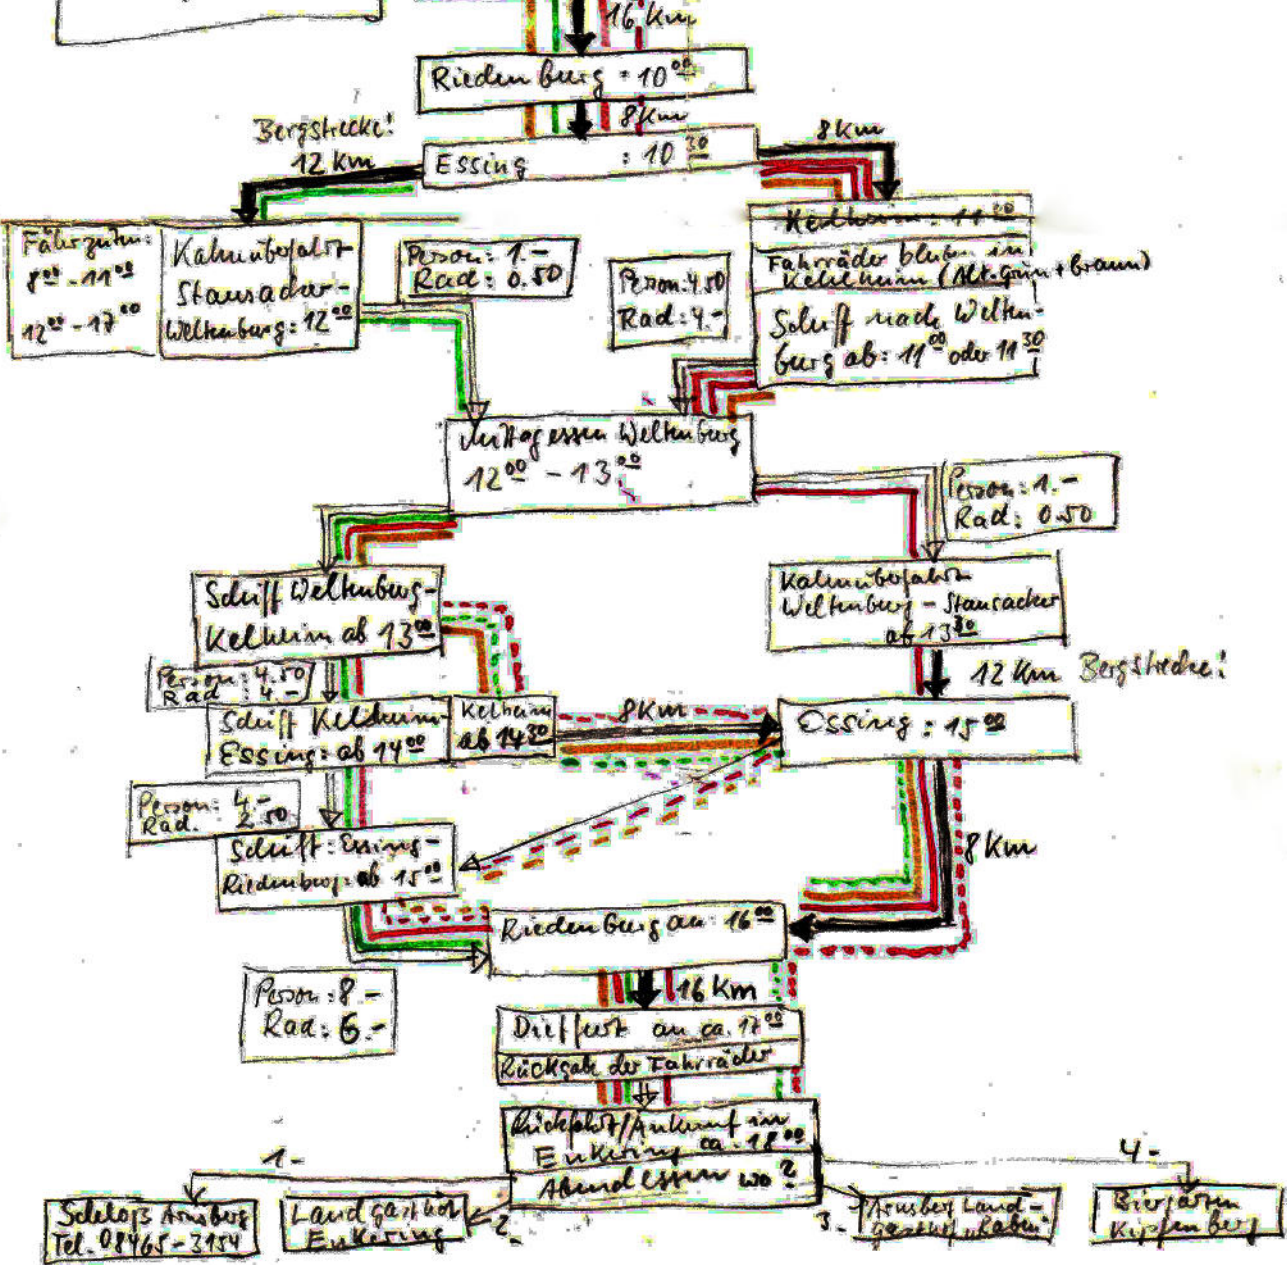 16 Km
Riedenburg : 10 00
8 Km
Bergstrecke!
12 km
Essing : 10 30
8 Km
Fährzeiten:
8 00 - 11 00
12 00 - 17 00
Kahnüberfahrt
Stausacker-
Weltenburg: 12 00
Person: 1.-
Rad: 0.50
Person: 4.50
Rad: 4.-
Kelheim: 11 00
Fahrräder bleiben in
Kehlheim (Alt. Grün + braun)
Schiff nach Welten-
burg ab: 11 00 oder 11 30
Mittagessen Weltenburg
12 00 - 13 00
Person: 1.-
Rad: 0.50
Schiff Weltenburg-
Kelheim ab 13 00
Kahnüberfahrt
Weltenburg - Stausacker
ab 13 30
12 Km Bergstrecke!
Person: 4.50
Rad : 4.-
Schiff Kelheim-
Essing: ab 14 00
Kelheim
ab 14 30
8 Km
Essing : 15 00
Person: 4.-
Rad. 2.50
Schiff: Essing-
Riedenburg: ab 15 00
8 Km
Riedenburg an: 16 00
Person: 8 -
Rad: 6.-
16 Km
Dietfurt an ca. 17 00
Rückgabe der Fahrräder
Rückfahrt/Ankunft in
Enkering ca. 18 00
Abendessen wo ?
1-
2-
3-
4-
Schloß Arnsberg
Tel. 08465-3154
Landgasthof
Enkering
Arnsberg Land-
gasthof "Raben"
Biergarten
Kipfenberg